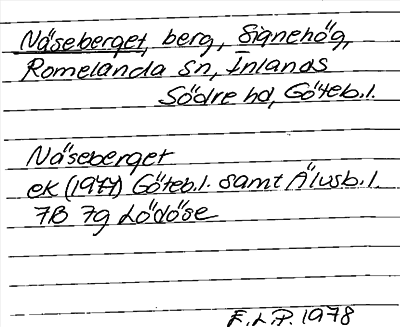 Näseberget, berg, Signehög,
Romelanda sn, Inlands
Södre hd, Göteb.l.
Näseberget
ek (1977) Göteb.l. samt Älvsb.l.
7B 7g Lödöse
E.L.P. 1978